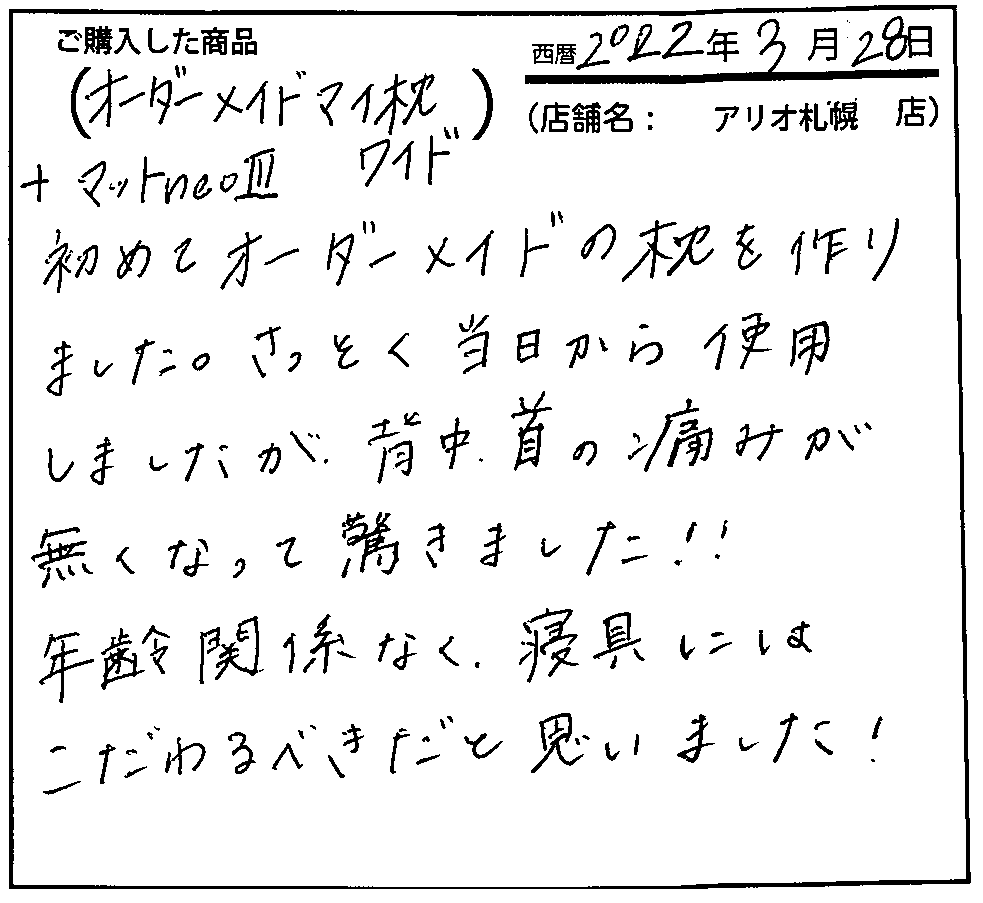 ご購入した商品
西暦2022年3月28日
(オーダーメイドマイ枕)
(店舗名: アリオ札幌 店)
+ マットneoⅢ ワイド
初めてオーダーメイドの枕を作り
ました。さっそく当日から使用
しましたが、背中、首の痛みが
無くなって驚きました!!
年齢関係なく、寝具には
こだわるべきだと思いました!